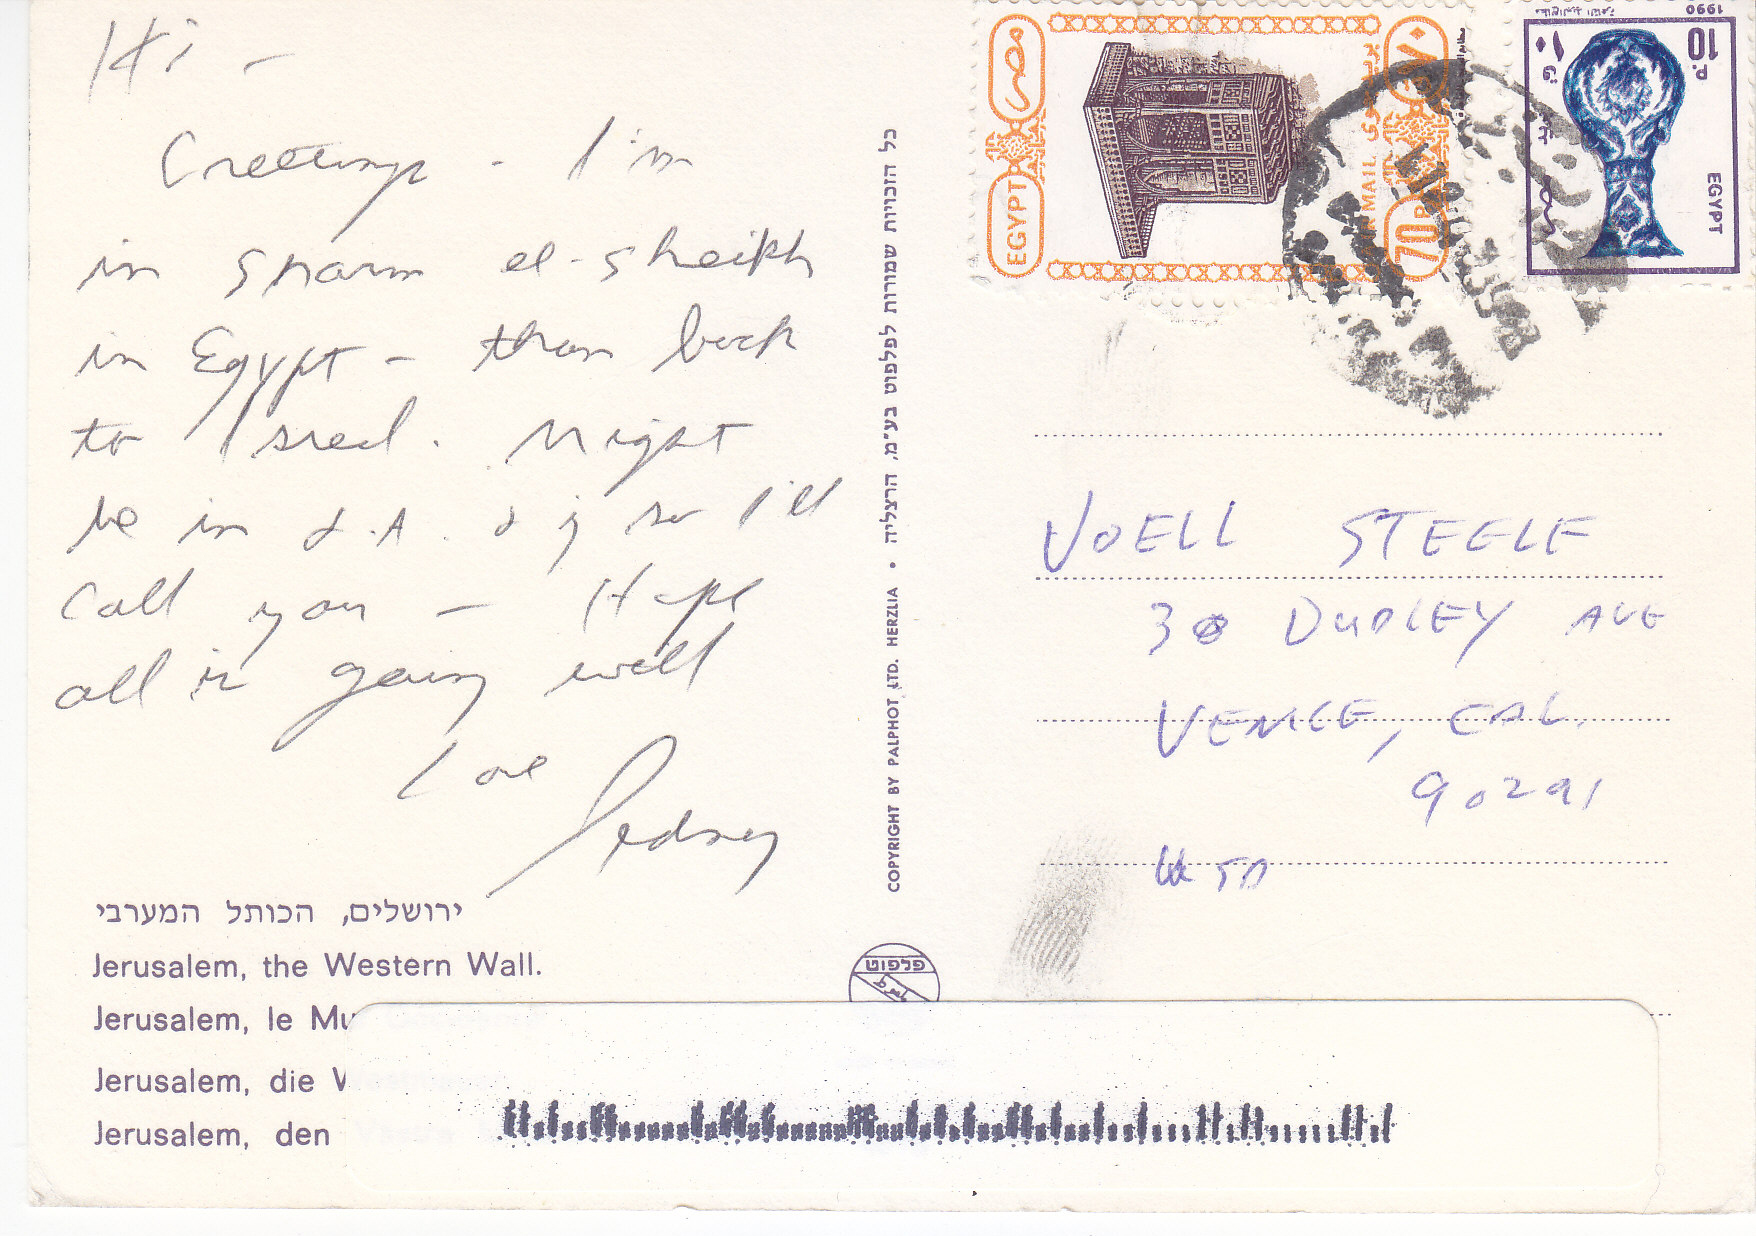 Hi -
Greetings - I'm
in Sharm el-Sheikh
in Egypt - then back
to Israel. Might
be in L.A. & if so I'll
call you - Hope
all is going well
Love
Sidney
ירושלים, הכותל המערבי
Jerusalem, the Western Wall.
Jerusalem, le Mu
Jerusalem, die W
Jerusalem, den
כל הזכויות שמורות לפלפוט בע"מ, הרצליה •
COPYRIGHT BY PALPHOT LTD. HERZLIA
פלפוט
مصر
EGYPT
بريد جوي
AIRMAIL
70 P
٧٠
1990
10 P.
١٠
مصر
EGYPT
JOELL STEELE
30 DUDLEY AVE
VENICE, CAL.
90291